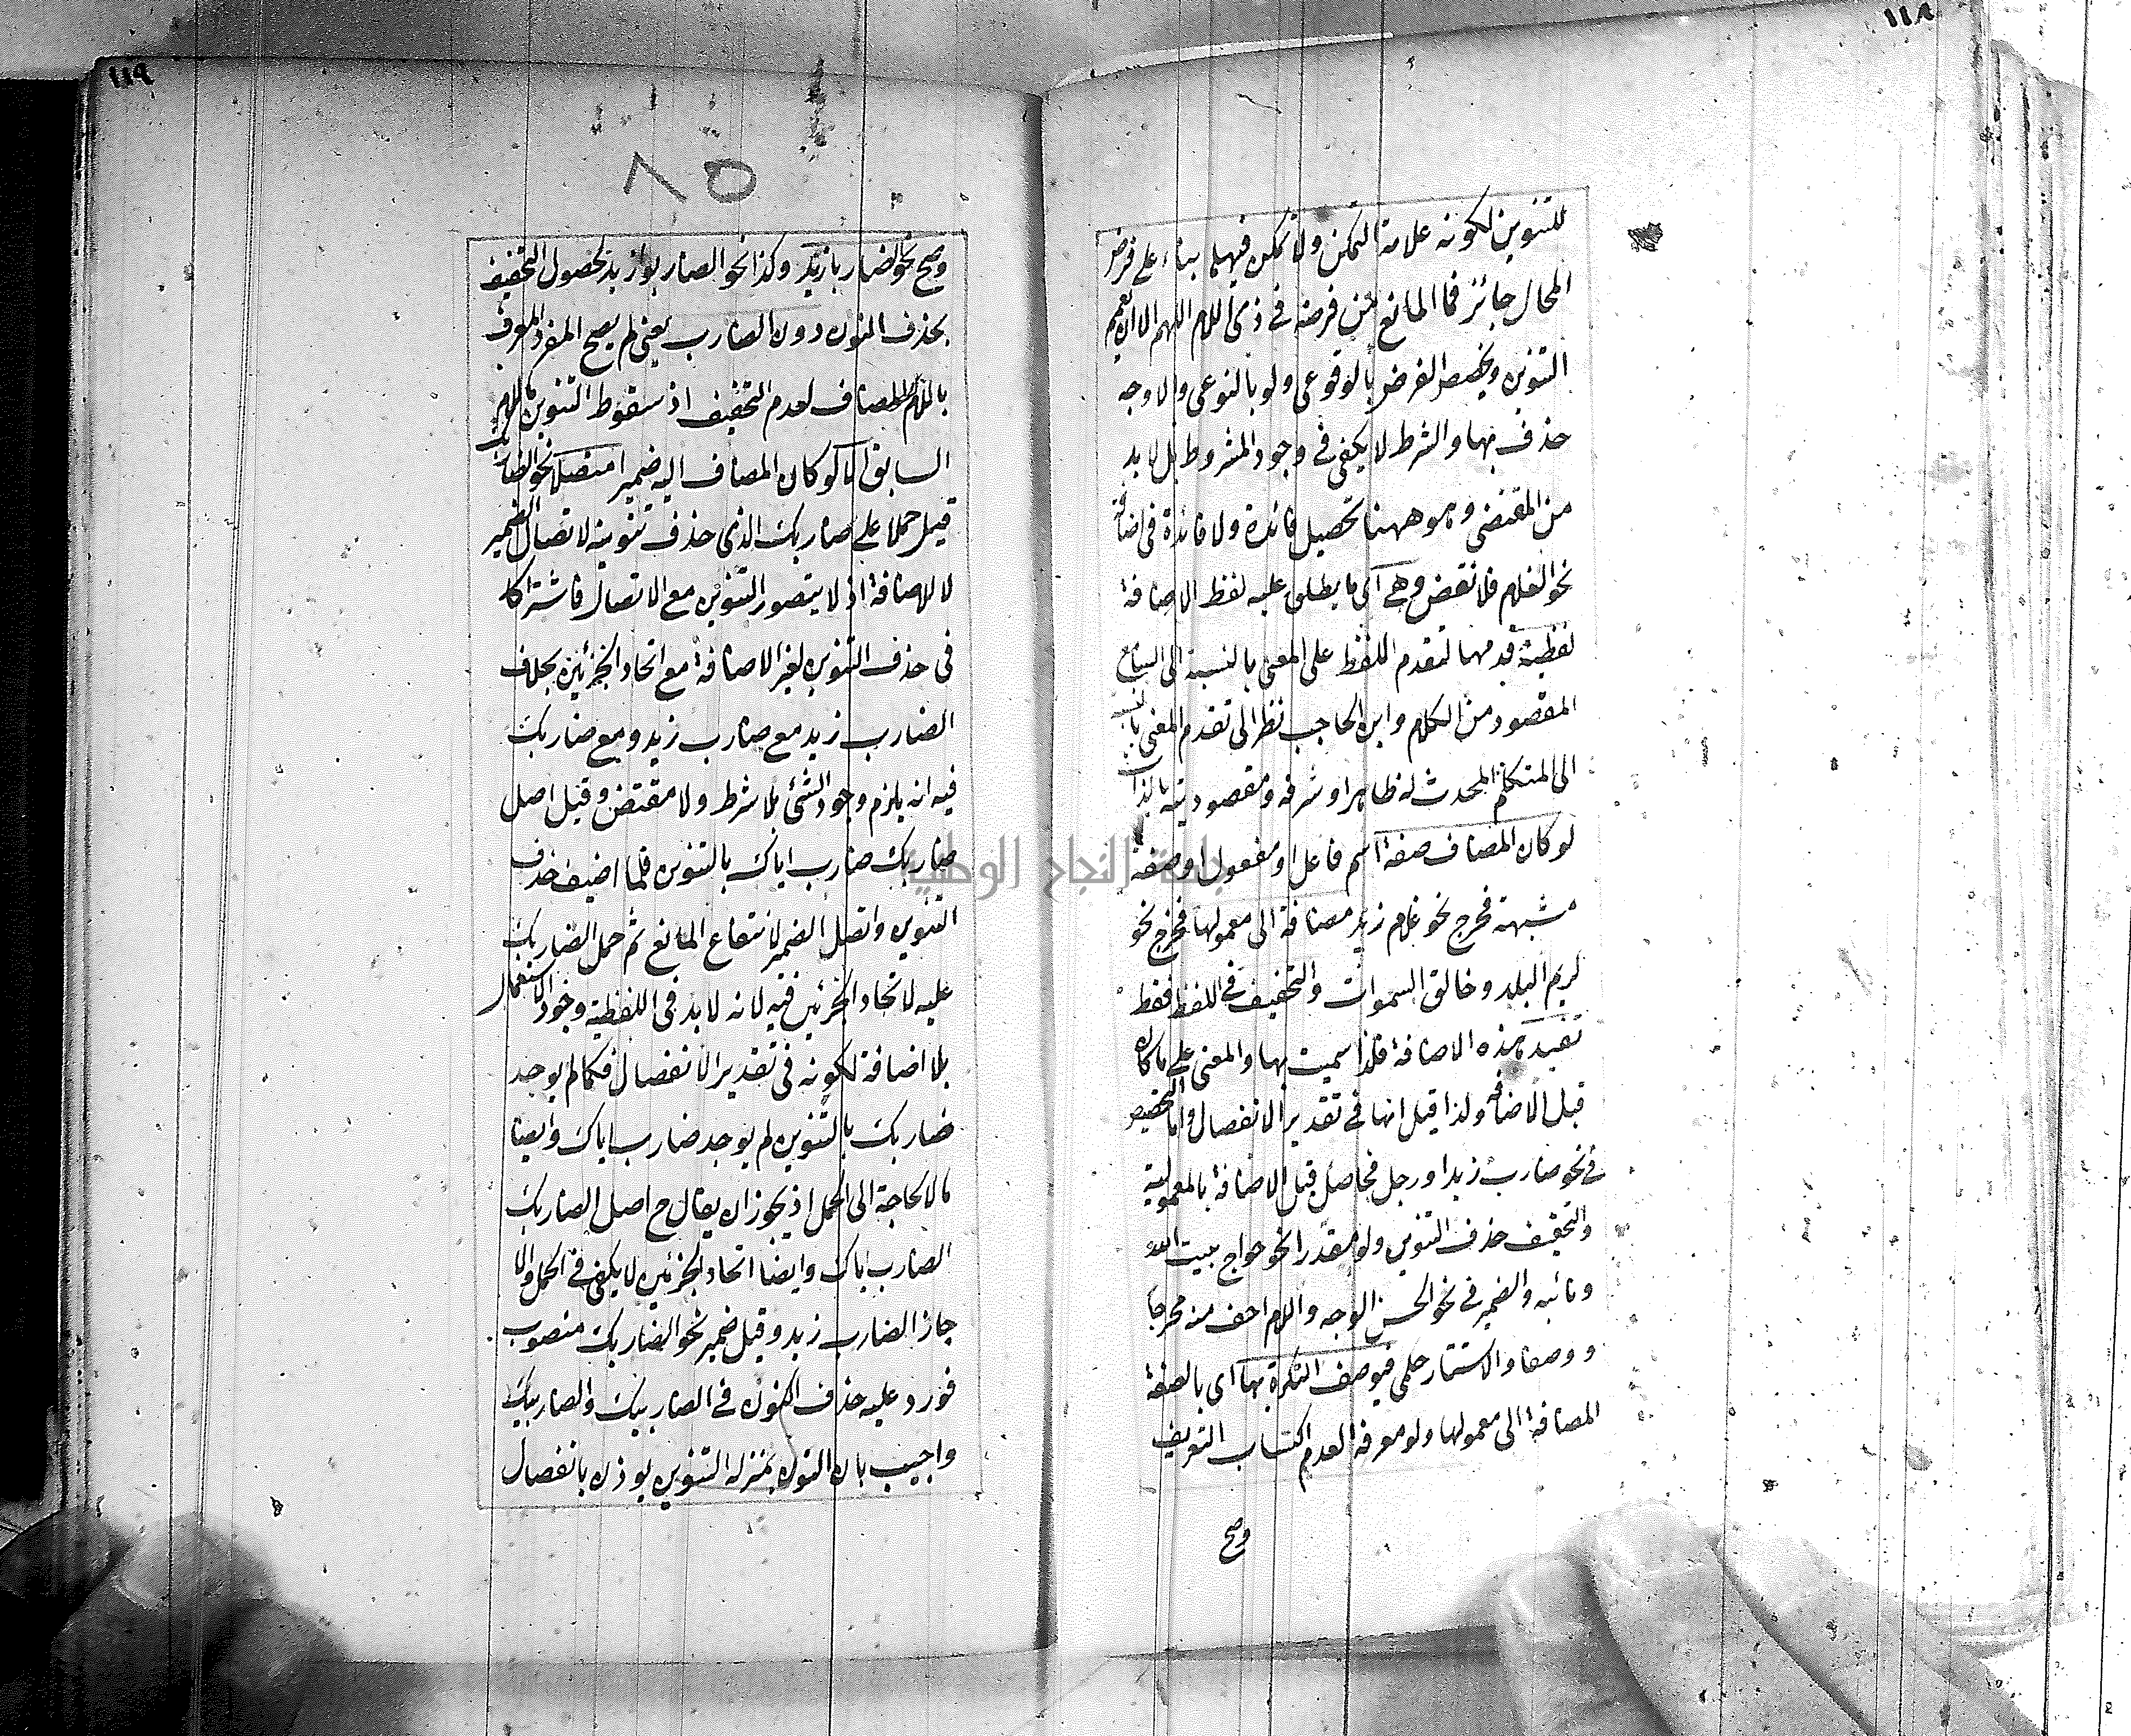 ١١٨
للتنوين لكونه علامة التمكن ولا تمكن فيهما بناء على فرض
المحال جائز فما المانع من فرضه في ذى اللام اللهم الا ان يعمم
التنوين ويخصص الفرض بالوقوعى ولو بالنوعى والاوجه
حذف بها والشرط لا يكفى في وجود المشروط بل لا بد
من المقتضى وهو ههنا تحصيل فائدة ولا فائدة فى اضافة
نحو الغلام فلا نقض وهى اى ما يطلق عليه لفظ الاضافة
لفظية قدمها لتقدم اللفظ على المعنى بالنسبة الى السامع
المقصود من الكلام وابن الحاجب نظر الى تقدم المعنى
الى المتكلم المحدث له ظاهرا وشرفه ومقصوديته بالذات
لو كان المضاف صفة اسم فاعل او مفعول او صفة
مشبهة فخرج نحو غلام زيد مضافة الى معمولها فخرج نحو
كريم البلد وخالق السموات والتخفيف فى اللفظ فقط
تفيد هذه الاضافة فلذا سميت بها والمعنى على ما كان
قبل الاضافة ولذا قيل انها فى تقدير الانفصال واما التخصيص
فى نحو ضارب زيد او رجل فحاصل قبل الاضافة بالمعمولية
والتخفيف حذف التنوين ولو مقدرا نحو حواج بيت الله
ونائبه والضمير فى نحو الحسن الوجه واللام اخف منه مخرجا
ووصفا والاستتار حكمى فيوصف النكرة بها اى بالصفة
المضافة الى معمولها ولو معرفة لعدم اكتساب التعريف
وصح
١١٩
٨٥
وصح نحو الضاربا زيد وكذا نحو الضاربو زيد لحصول التخفيف
بحذف النون دون الضارب يعنى لم يصح المفرد المعرف
باللام المضاف لعدم التخفيف اذ سقوط التنوين للام
السابق كما لو كان المضاف اليه ضميرا متصلا نحو الضاربك
قيل حملا على ضاربك الذى حذف تنوينه لاتصال الضمير
لا للاضافة اذ لا يتصور التنوين مع الاتصال فاشتركا
فى حذف التنوين لغير الاضافة مع اتحاد الجزئين بخلاف
الضارب زيد مع ضارب زيد ومع ضاربك
فيه انه يلزم وجود الشئ بلا شرط ولا مقتض وقيل اصل
ضاربك ضارب اياك بالتنوين فلما اضيف حذف
التنوين واتصل الضمير لانتفاع المانع ثم حمل الضاربك
عليه لاتحاد الجزئين فيه لانه لا بد فى اللفظية وجود الاستعمال
بلا اضافة لكونه فى تقدير الانفصال فكما لم يوجد
ضاربك بالتنوين لم يوجد ضارب اياك وايضا
لا حاجة الى الحمل اذ يجوز ان يقال ح اصل الضاربك
الضارب اياك وايضا اتحاد الجزئين لا يكفى فى الحمل والا
جاز الضارب زيد وقيل ضمير نحو الضاربك منصوب
فورد عليه حذف النون فى الضاربيك والضاربيك
واجيب بان النون بمنزلة التنوين يوذن بانفصال
جامعة النجاح الوطنية